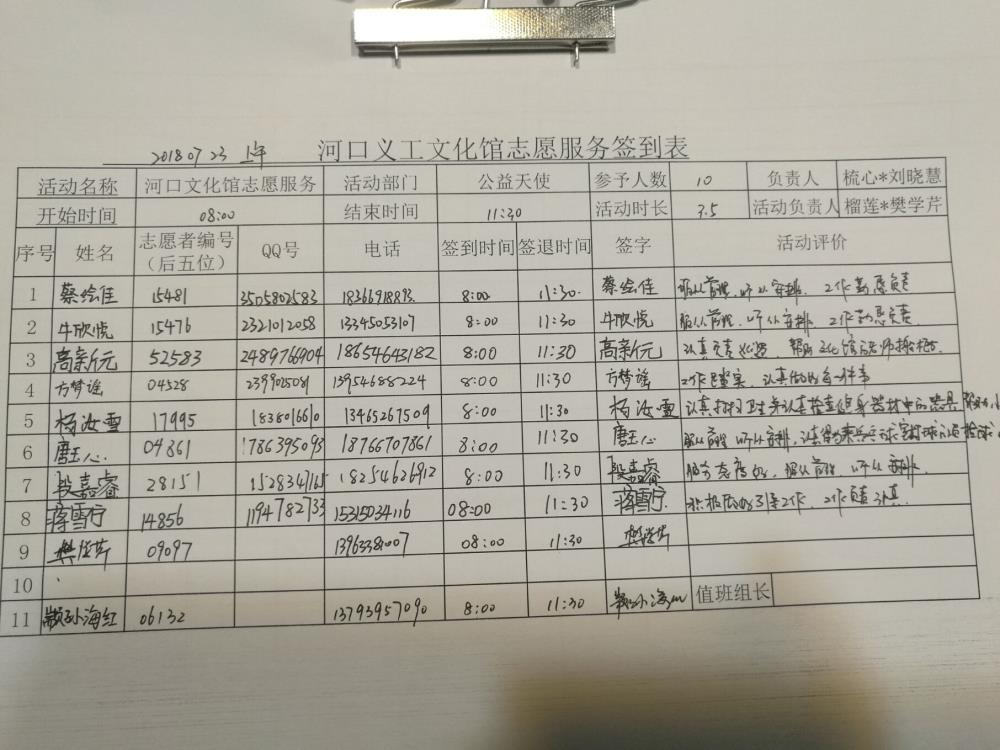 2018 07 23 上午 河口义工文化馆志愿服务签到表
活动名称 河口文化馆志愿服务 活动部门 公益天使 参予人数 10 负责人 梳心*刘晓慧
开始时间 08:00 结束时间 11:30 活动时长 3.5 活动负责人 榴莲*樊学芹
序号 姓名 志愿者编号（后五位） QQ号 电话 签到时间 签退时间 签字 活动评价
1 蔡绘佳 15481 3505802583 18366918893 8:00 11:30 蔡绘佳 服从管理，听从安排，工作认真负责
2 牛欣悦 15476 2321012058 13345053107 8:00 11:30 牛欣悦 服从管理，听从安排，工作认真负责
3 高新元 52583 2489766904 18654643182 8:00 11:30 高新元 认真负责 帮助文化馆老师
4 方梦谣 04328 2399025081 13954688224 8:00 11:30 方梦谣 工作踏实，认真做好每一件事
5 杨汝雪 17995 1838016610 13465267509 8:00 11:30 杨汝雪 认真打扫卫生并认真检查健身器材中的器具
6 唐王心 04361 1786395093 18766707861 8:00 11:30 唐王心 服从管理 听从安排，
7 段嘉睿 28151 1528341165 18254626912 8:00 11:30 段嘉睿 服务态度好，服从管理，听从安排
8 蒋雪佇 14856 1194782733 15315034116 08:00 11:30 蒋雪佇 积极 工作，工作负责认真
9 樊学芹 09097 13963381007 08:00 11:30 樊学芹
10
11 颛孙海红 06132 13793957090 8:00 11:30 颛孙海红 值班组长